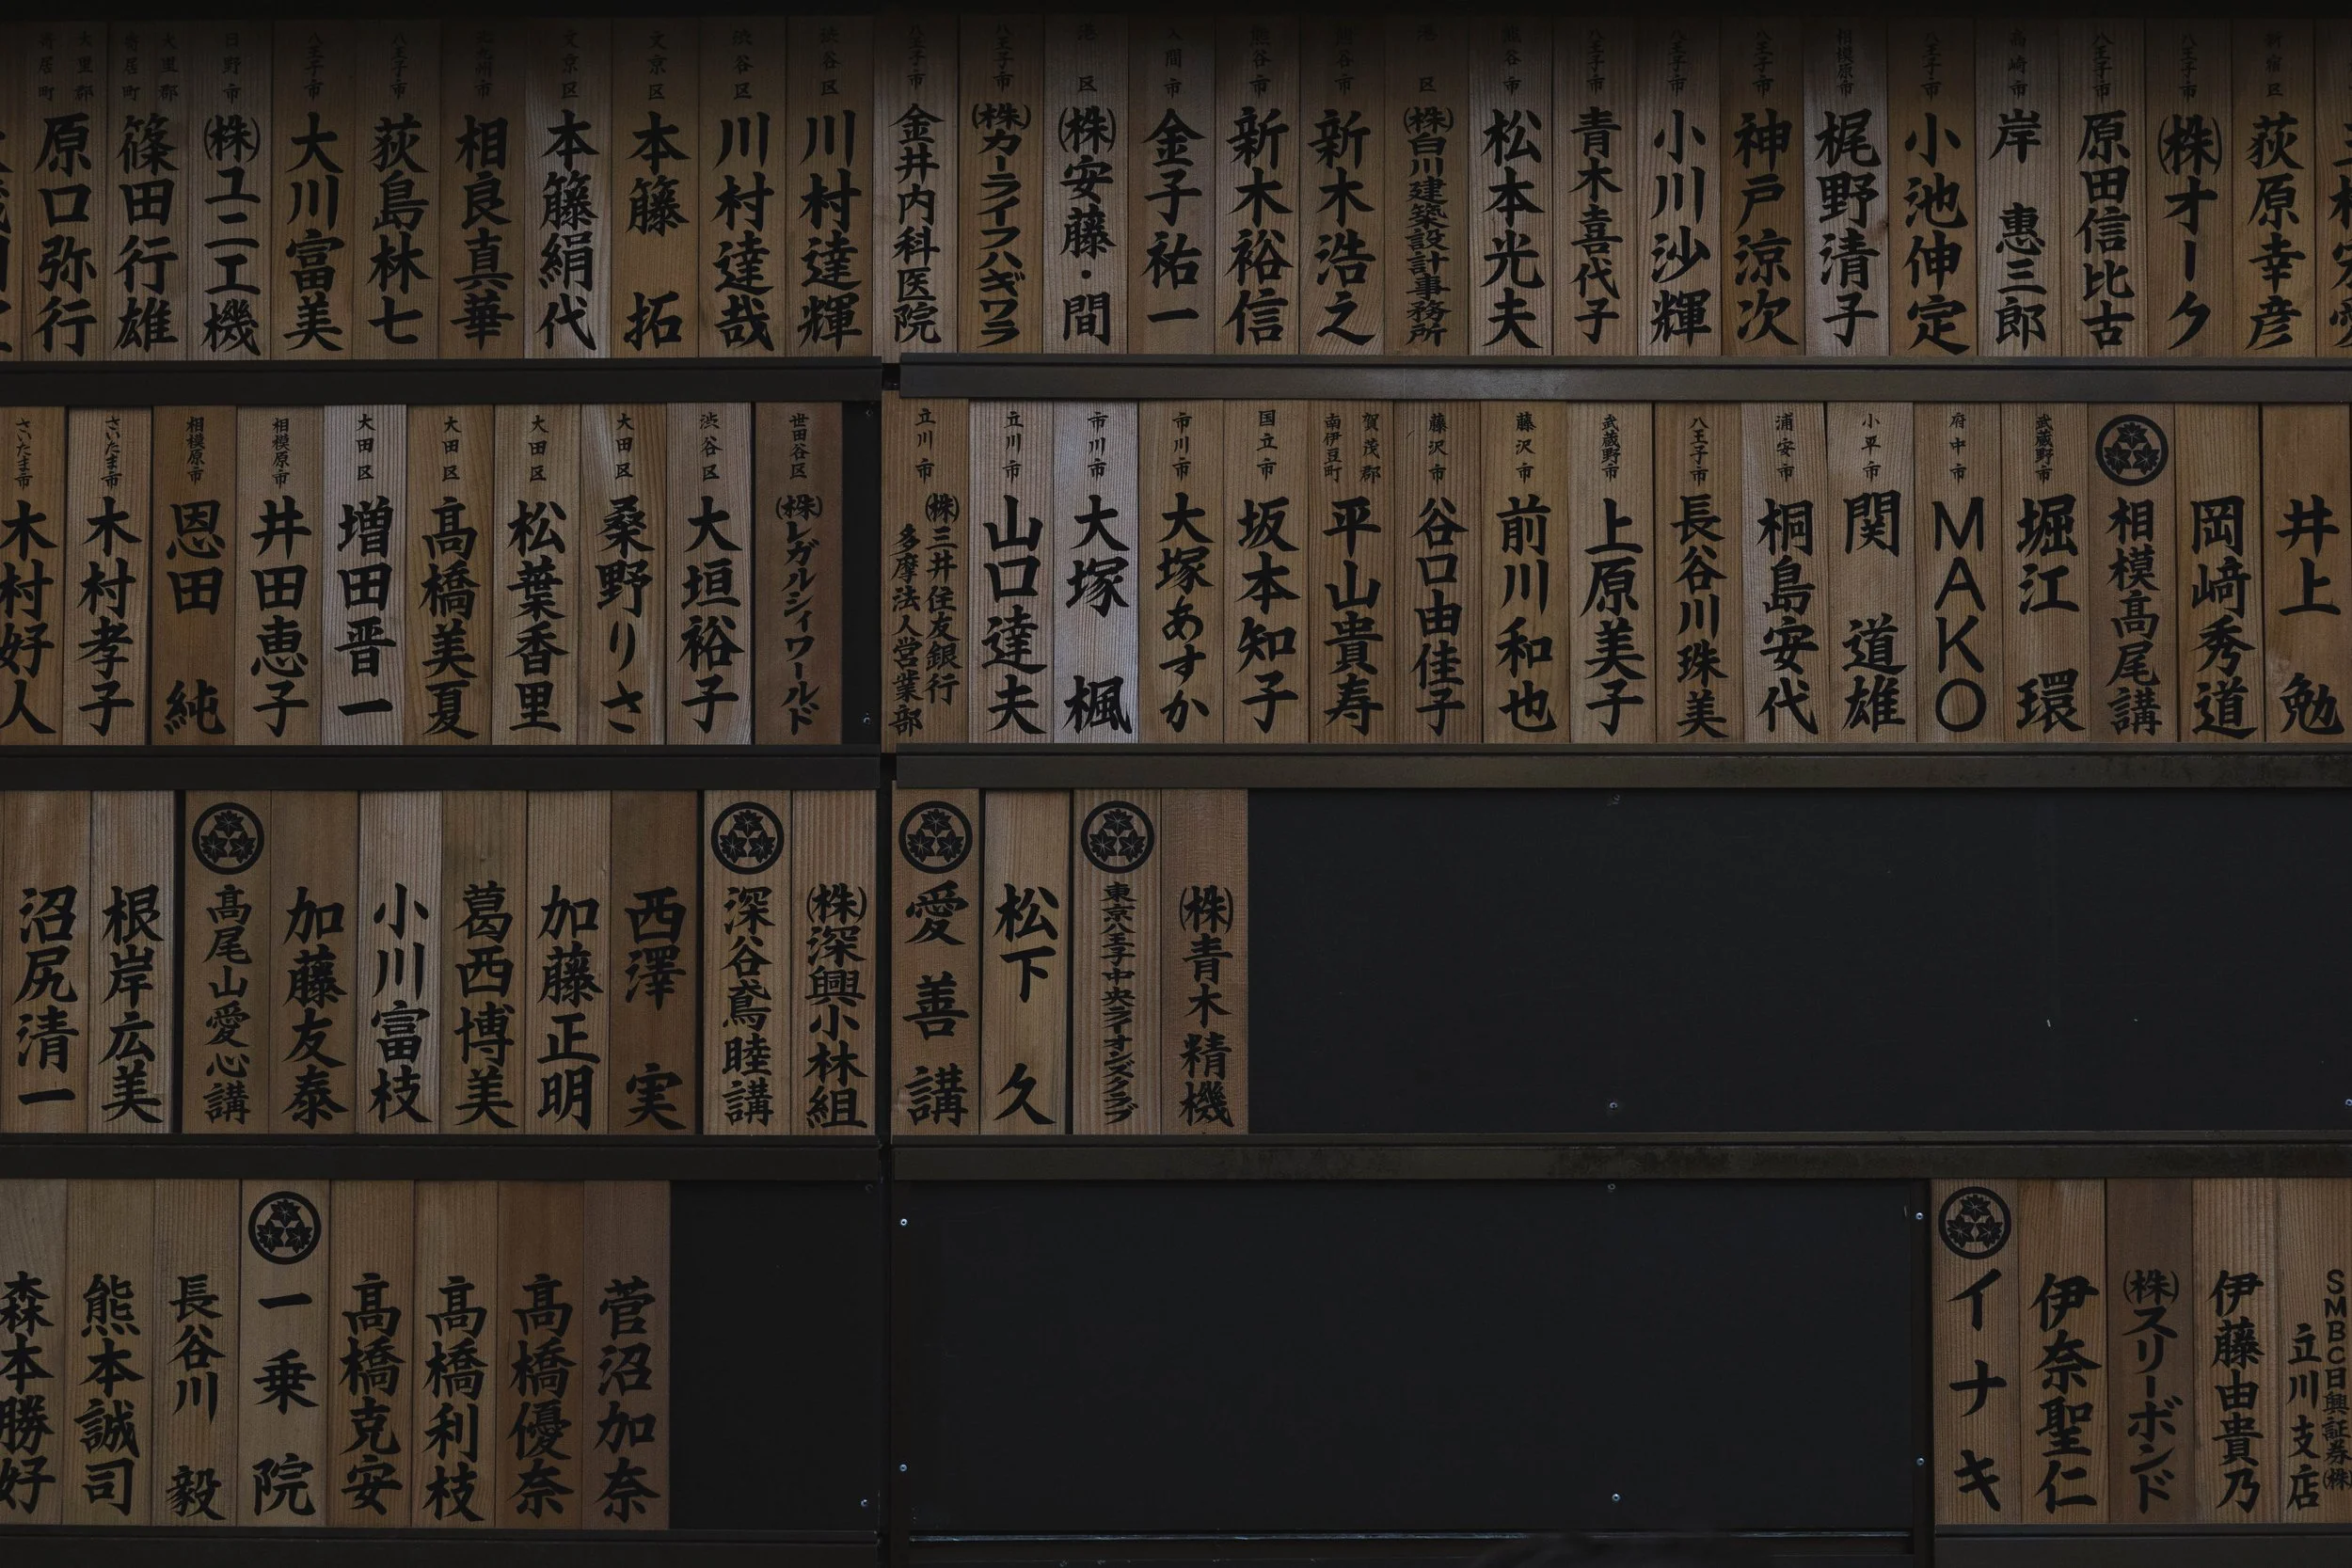 新宿区 荻原幸彦
八王子市 ㈱オーク
八王子市 原田信比古
高崎市 岸 惠三郎
八王子市 小池伸定
相模原市 梶野清子
八王子市 神戸涼次
八王子市 小川沙輝
八王子市 青木喜代子
松本光夫
港区 ㈱白川建築設計事務所
熊谷市 新木浩之
熊谷市 新木裕信
入間市 金子祐一
港区 ㈱安藤・間
八王子市 ㈱カーライフハギワラ
八王子市 金井内科医院
渋谷区 川村達輝
渋谷区 川村達哉
文京区 本籐 拓
文京区 本籐絹代
相良真華
八王子市 荻島林七
八王子市 大川富美
日野市 ㈱ユニエ機
大里郡寄居町 篠田行雄
大里郡寄居町 原口弥行
井上 勉
岡﨑秀道
相模髙尾講
武蔵野市 堀江 環
府中市 MAKO
小平市 関 道雄
浦安市 桐島安代
八王子市 長谷川珠美
武蔵野市 上原美子
藤沢市 前川和也
藤沢市 谷口由佳子
賀茂郡南伊豆町 平山貴寿
国立市 坂本知子
市川市 大塚あすか
市川市 大塚 楓
立川市 山口達夫
立川市 ㈱三井住友銀行
多摩法人営業部
世田谷区 ㈱レガルシィワールド
渋谷区 大垣裕子
大田区 桑野りさ
大田区 松葉香里
大田区 髙橋美夏
大田区 増田晋一
相模原市 井田恵子
相模原市 恩田 純
さいたま市 木村孝子
さいたま市 木村好人
㈱青木精機
東京八王子中央ライオンズクラブ
松下 久
愛善講
㈱深興小林組
深谷鳶睦講
西澤 実
加藤正明
葛西博美
小川富枝
加藤友泰
髙尾山愛心講
根岸広美
沼尻清一
SMBC日興証券㈱
立川支店
伊藤由貴乃
㈱スリーボンド
伊奈聖仁
イナキ
菅沼加奈
髙橋優奈
髙橋利枝
髙橋克安
一乗院
長谷川 毅
熊本誠司
森本勝好